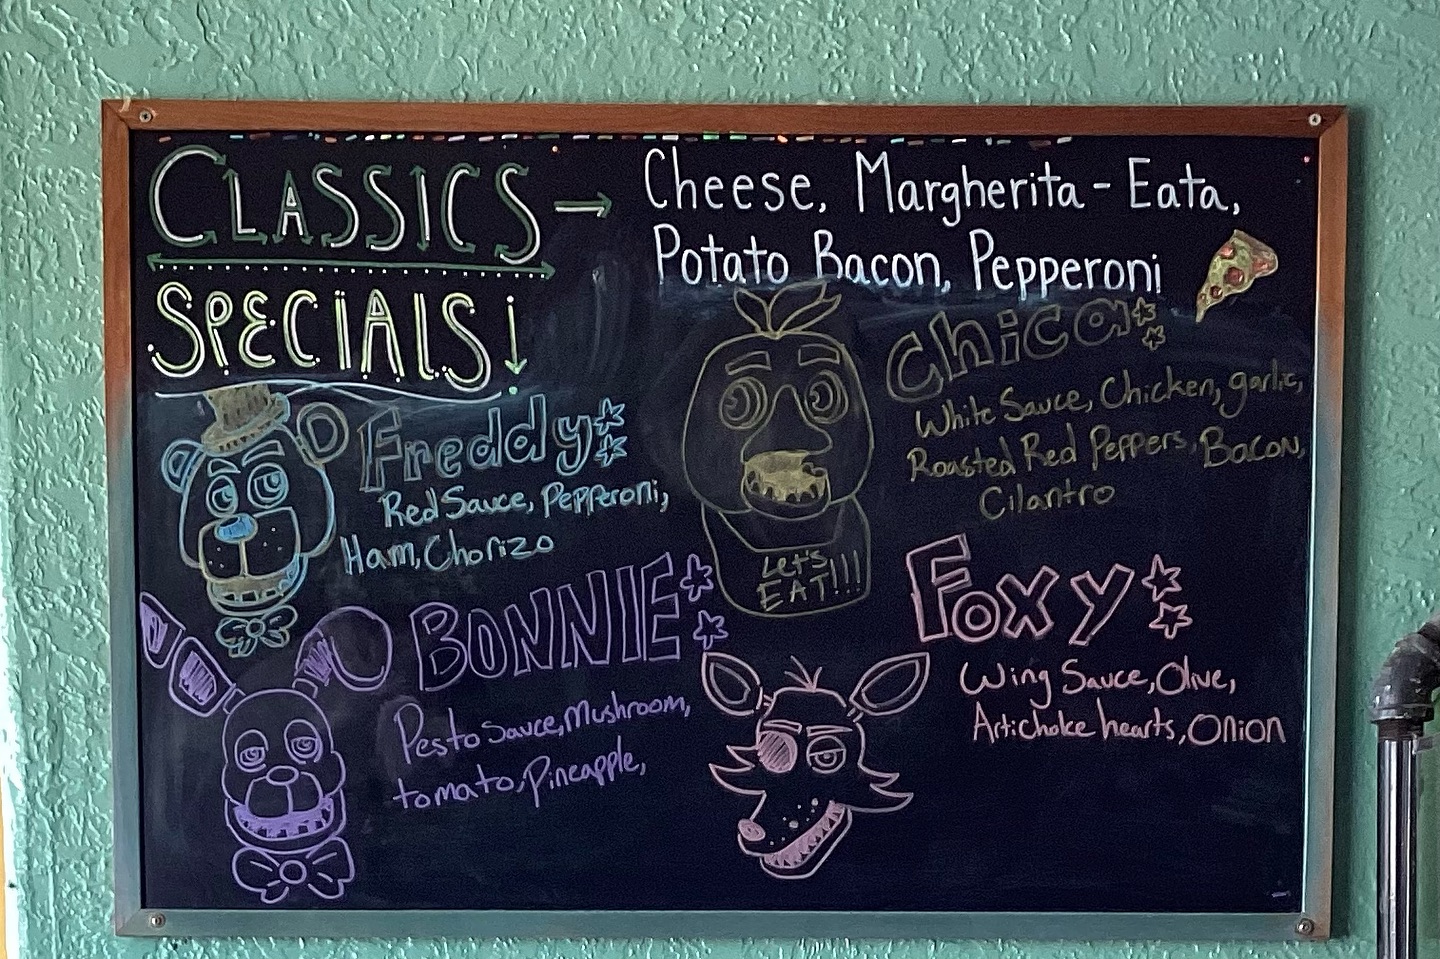 CLASSICS → Cheese, Margherita - Eata,
Potato Bacon, Pepperoni
SPECIALS ↓
Freddy
Red Sauce, Pepperoni,
Ham, Chorizo
Chica
White Sauce, Chicken, garlic,
Roasted Red Peppers, Bacon,
Cilantro
Let's
EAT!!!
BONNIE
Pesto Sauce, Mushroom,
tomato, Pineapple,
Foxy
Wing Sauce, Olive,
Artichoke hearts, Onion